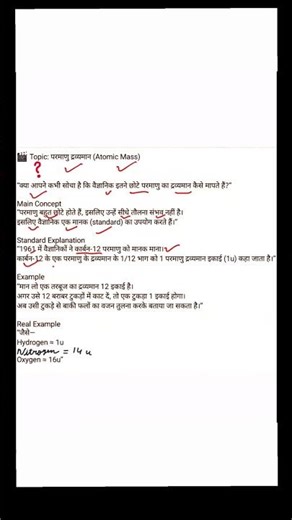 🎬 Topic: परमाणु द्रव्यमान (Atomic Mass)
?
"क्या आपने कभी सोचा है कि वैज्ञानिक इतने छोटे परमाणु का द्रव्यमान कैसे मापते हैं?"
Main Concept
"परमाणु बहुत छोटे होते हैं, इसलिए उन्हें सीधे तौलना संभव नहीं है।
इसलिए वैज्ञानिक एक मानक (standard) का उपयोग करते हैं।"
Standard Explanation
"1961 में वैज्ञानिकों ने कार्बन-12 परमाणु को मानक माना।
कार्बन-12 के एक परमाणु के द्रव्यमान के 1/12 भाग को 1 परमाणु द्रव्यमान इकाई (1u) कहा जाता है।"
Example
"मान लो एक तरबूज का द्रव्यमान 12 इकाई है।
अगर उसे 12 बराबर टुकड़ों में काट दें, तो एक टुकड़ा 1 इकाई होगा।
अब उसी टुकड़े से बाकी फलों का वजन तुलना करके बताया जा सकता है।"
Real Example
"जैसे—
Hydrogen = 1u
Nitrogen = 14 u
Oxygen = 16u"